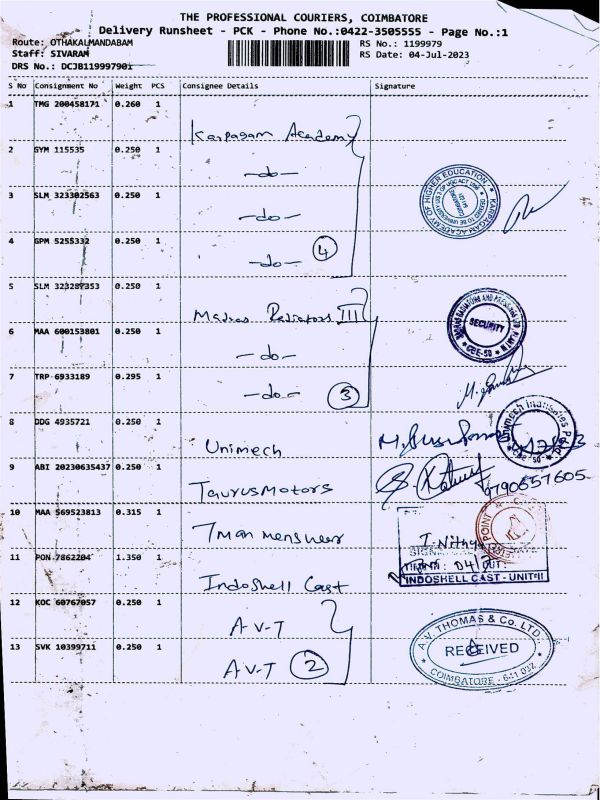 THE PROFESSIONAL COURIERS, COIMBATORE
Delivery Runsheet - PCK - Phone No.:0422-3505555 - Page No.:1
Route: OTHAKALMANDABAM
Staff: SIVARAM
DRS No.: DCJB11999790i
RS No.: 1199979
RS Date: 04-Jul-2023
S No Consignment No Weight PCS Consignee Details Signature
1 TMG 200458171 0.260 1 Karpagam Academy
2 GYM 115535 0.250 1 -do-
3 SLM 323302563 0.250 1 -do-
4 GPM 5255332 0.250 1 -do- 4
KARPAGAM ACADEMY OF HIGHER EDUCATION
5 SLM 323287353 0.250 1 Madras Radiators III
6 MAA 600153801 0.250 1 -do-
SECURITY
CBE-50
7 TRP 6933189 0.295 1 -do- 3
8 DDG 4935721 0.250 1 Unimech
Unimech Industries Pvt. Ltd.
CBE-50
9 ABI 20230635437 0.250 1 Taurus Motors
9790657605
10 MAA 569523813 0.315 1 7 Man menswear
POINT
I. Nithya
11 PON 7862204 1.350 1 Indoshell Cast
INDOSHELL CAST - UNIT-II
12 KOC 60767057 0.250 1 A.V.T
13 SVK 10399711 0.250 1 A.V.T 2
A.V. THOMAS & Co. LTD.,
RECEIVED
COIMBATORE - 641 032